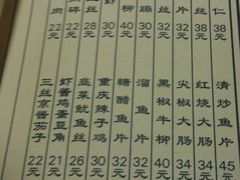 肉 22元
碎 22元
丝 28元
30元
柳 40元
丝 32元
片 32元
丝 38元
仁 38元
三丝京酱茄子 22元
虾酱鸡蛋豆角 21元
韭菜鱿鱼丝 26元
重庆辣子鸡 30元
糖醋鱼片 32元
溜鱼片 32元
黑椒牛柳 40元
尖椒大肠 34元
红烧大肠 34元
清炒鱼片 45元